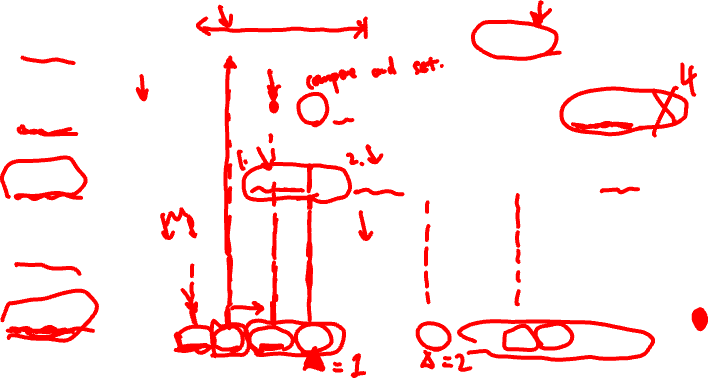 compare and set.
4
1. 2.
= 1
Δ = 2